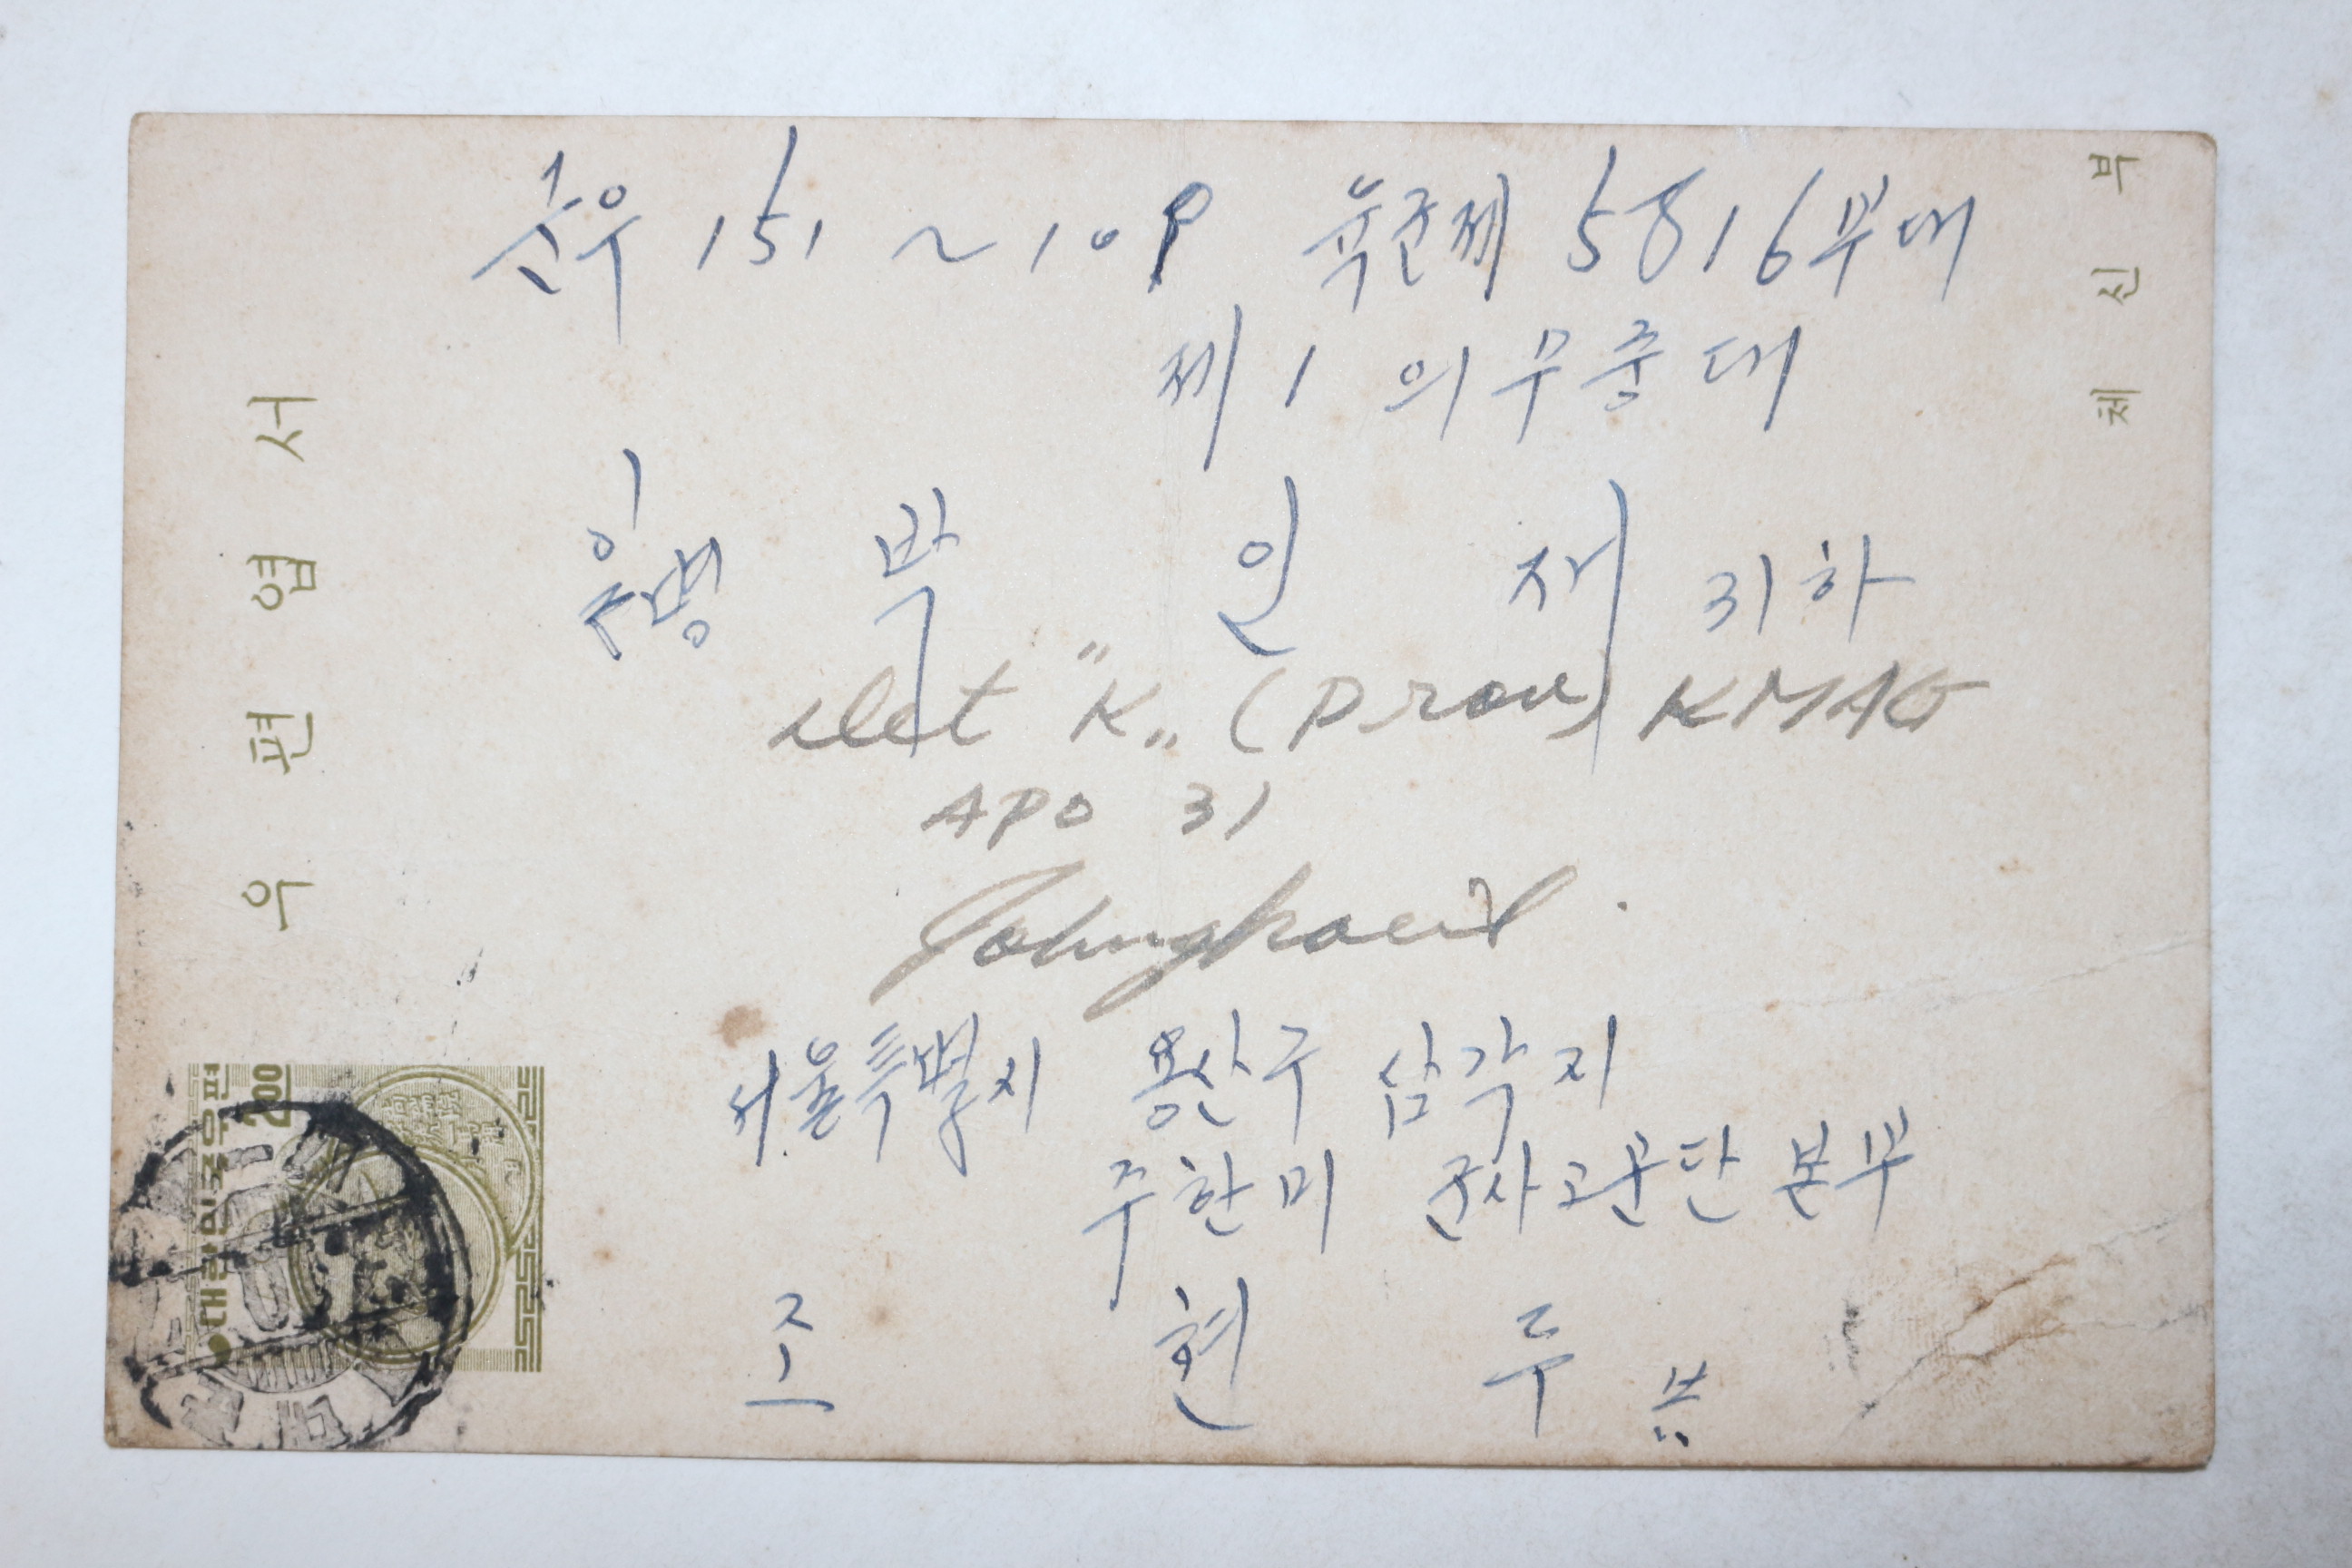 우편엽서
체신부
대한민국우편
2.00
군우 151 ~ 10P 육군제 5816부대
제 1 의무중대
일병 박 인 재 귀하
Det "K" (Prov) KMAG
APO 31
서울특별시 용산구 삼각지
주한미 군사고문단 본부
조 현 두